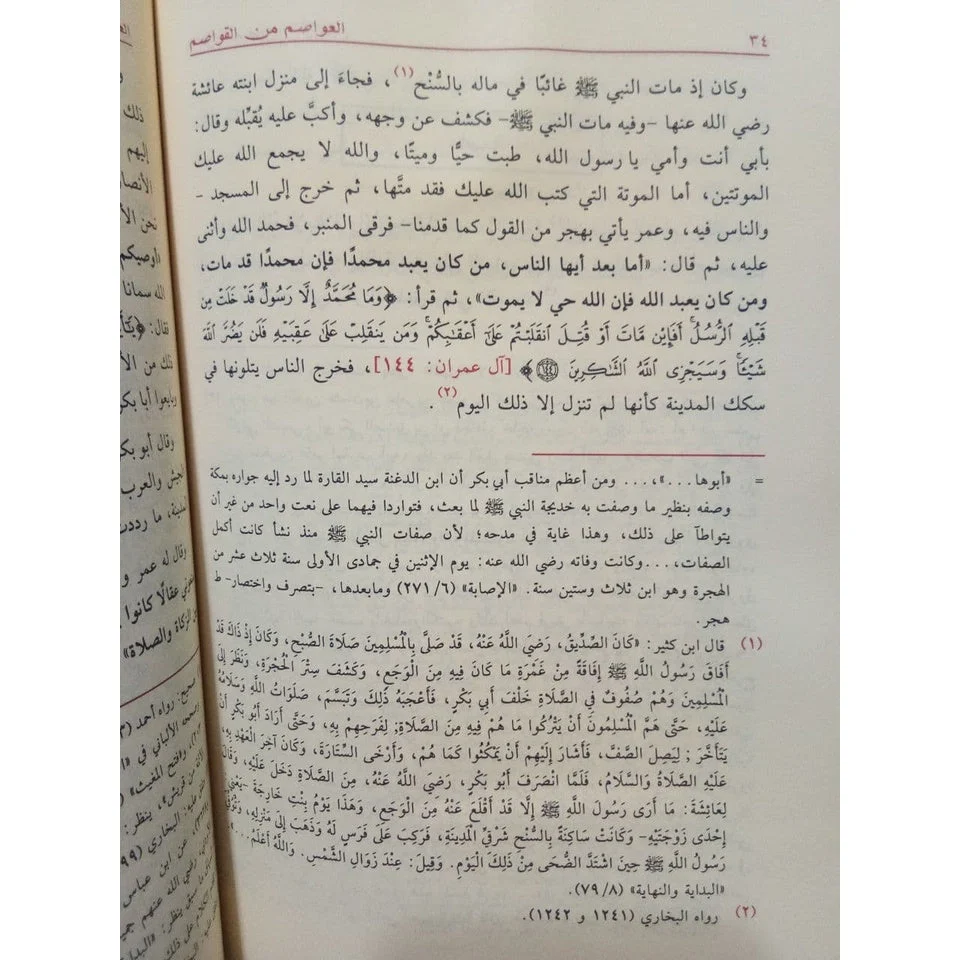 ٣٤
العواصم من القواصم
وكان إذ مات النبي ﷺ غائبًا في ماله بالسُّنْح(١)، فجاءَ إلى منزل ابنته عائشة
رضي الله عنها –وفيه مات النبي ﷺ– فكشف عن وجهه، وأكبَّ عليه يُقبِّله وقال:
بأبي أنت وأمي يا رسول الله، طبت حيًّا وميتًا، والله لا يجمع الله عليك
الموتتين، أما الموتة التي كتب الله عليك فقد متَّها، ثم خرج إلى المسجد -
والناس فيه، وعمر يأتي بهجر من القول كما قدمنا– فرقى المنبر، فحمد الله وأثنى
عليه، ثم قال: «أما بعد أيها الناس، من كان يعبد محمدًا فإن محمدًا قد مات،
ومن كان يعبد الله فإن الله حي لا يموت»، ثم قرأ: ﴿وَمَا مُحَمَّدٌ إِلَّا رَسُولٌ قَدْ خَلَتْ مِن
قَبْلِهِ ٱلرُّسُلُ ۚ أَفَإِيْن مَّاتَ أَوْ قُتِلَ ٱنقَلَبْتُمْ عَلَىٰٓ أَعْقَٰبِكُمْ ۚ وَمَن يَنقَلِبْ عَلَىٰ عَقِبَيْهِ فَلَن يَضُرَّ ٱللَّهَ
شَيْـًٔا ۗ وَسَيَجْزِى ٱللَّهُ ٱلشَّٰكِرِينَ ١٤٤﴾ [آل عمران: ١٤٤]، فخرج الناس يتلونها في
سكك المدينة كأنها لم تنزل إلا ذلك اليوم(٢).
= «أبوها...»،... ومن أعظم مناقب أبي بكر أن ابن الدغنة سيد القارة لما رد إليه جواره بمكة
وصفه بنظير ما وصفت به خديجة النبي ﷺ لما بعث، فتواردا فيهما على نعت واحد من غير أن
يتواطآ على ذلك، وهذا غاية في مدحه؛ لأن صفات النبي ﷺ منذ نشأ كانت أكمل
الصفات،...وكانت وفاته رضي الله عنه: يوم الإثنين في جمادى الأولى سنة ثلاث عشر من
الهجرة وهو ابن ثلاث وستين سنة. «الإصابة» (٦/ ٢٧١) ومابعدها، –بتصرف واختصار- ط
هجر.
(١) قال ابن كثير: «كَانَ الصِّدِّيقُ، رَضِيَ اللَّهُ عَنْهُ، قَدْ صَلَّى بِالْمُسْلِمِينَ صَلَاةَ الصُّبْحِ، وَكَانَ إِذْ ذَاكَ قَدْ
أَفَاقَ رَسُولُ اللَّهِ ﷺ إِفَاقَةً مِنْ غَمْرَةِ مَا كَانَ فِيهِ مِنَ الْوَجَعِ، وَكَشَفَ سِتْرَ الْحُجْرَةِ، وَنَظَرَ إِلَى
الْمُسْلِمِينَ وَهُمْ صُفُوفٌ فِي الصَّلَاةِ خَلْفَ أَبِي بَكْرٍ، فَأَعْجَبَهُ ذَلِكَ وَتَبَسَّمَ، صَلَوَاتُ اللَّهِ وَسَلَامُهُ
عَلَيْهِ، حَتَّى هَمَّ الْمُسْلِمُونَ أَنْ يَتْرُكُوا مَا هُمْ فِيهِ مِنَ الصَّلَاةِ; لِفَرَحِهِمْ بِهِ، وَحَتَّى أَرَادَ أَبُو بَكْرٍ أَنْ
يَتَأَخَّرَ ; لِيَصِلَ الصَّفَّ، فَأَشَارَ إِلَيْهِمْ أَنْ يَمْكُثُوا كَمَا هُمْ، وَأَرْخَى السِّتَارَةَ، وَكَانَ آخِرَ الْعَهْدِ بِهِ،
عَلَيْهِ الصَّلَاةُ وَالسَّلَامُ، فَلَمَّا انْصَرَفَ أَبُو بَكْرٍ، رَضِيَ اللَّهُ عَنْهُ، مِنَ الصَّلَاةِ دَخَلَ عَلَيْهِ، وَقَالَ
لِعَائِشَةَ: مَا أَرَى رَسُولَ اللَّهِ ﷺ إِلَّا قَدْ أَقْلَعَ عَنْهُ مِنَ الْوَجَعِ، وَهَذَا يَوْمُ بِنْتِ خَارِجَةَ –يَعْنِي
إِحْدَى زَوْجَتَيْهِ– وَكَانَتْ سَاكِنَةً بِالسُّنْحِ شَرْقِيَّ الْمَدِينَةِ، فَرَكِبَ عَلَى فَرَسٍ لَهُ وَذَهَبَ إِلَى مَنْزِلِهِ، وَتُوُفِّيَ
رَسُولُ اللَّهِ ﷺ حِينَ اشْتَدَّ الضُّحَى مِنْ ذَلِكَ الْيَوْمِ. وَقِيلَ: عِنْدَ زَوَالِ الشَّمْسِ. وَاللَّهُ أَعْلَمُ...».
«البداية والنهاية» (٨/ ٧٩).
(٢) رواه البخاري (١٢٤١ و ١٢٤٢).
ذلك
إليهم
الأنصار
نحن الأ
«أوصيكم
الله سمانا
فقال:
ذلك من الأ
وبايعوا أبا بكر
وقال أبو بكر
لجيش والعرب
ما رددت
وقال له عمر و
عقالًا كانوا
الزكاة والصلاة»
صحيح: رواه أحمد